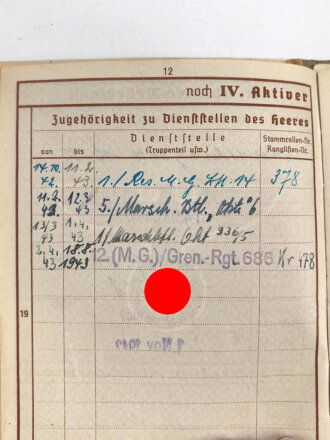 12
noch IV. Aktiver
Zugehörigkeit zu Dienststellen des Heeres
von bis Dienststelle (Truppenteil usw.) Stammrollen-Nr. Ranglisten-Nr.
14.10. 42. 11.2. 43. 14 378
11.2. 43. 12.3. 43 5./Marsch. Btl. 6
13/3 43 1.4. 43 1/ 336/5
2.4. 43 18.8. 1943 2. (M.G.)/Gren.-Rgt. 686 Kr 478
19